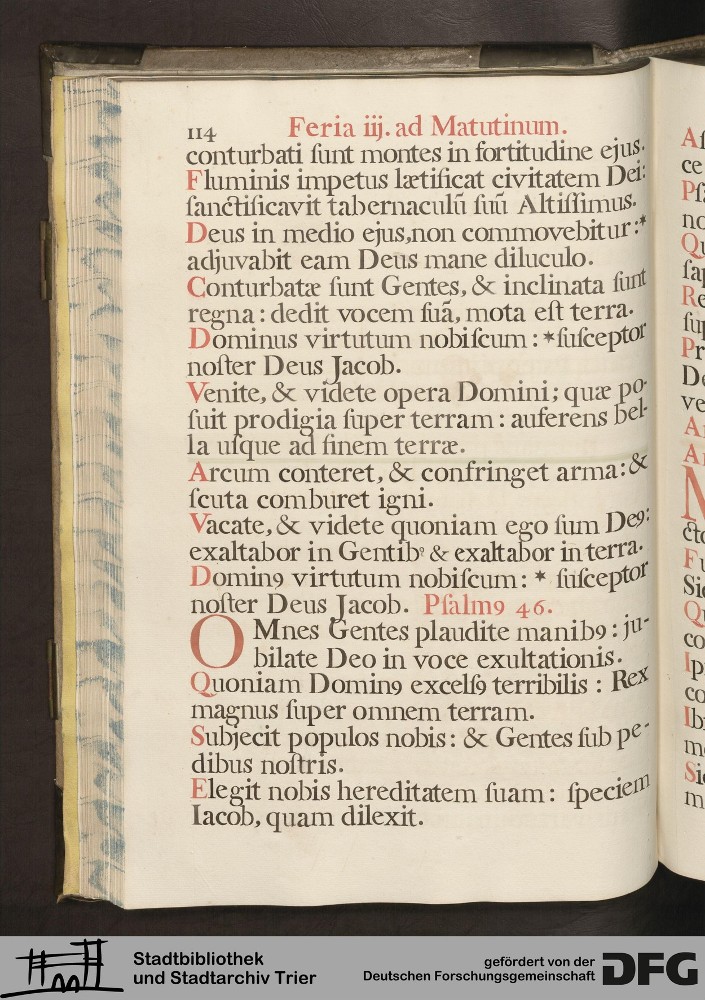 114 Feria iij. ad Matutinum.
conturbati ſunt montes in fortitudine ejus.
Fluminis impetus lætificat civitatem Dei:
ſanctificavit tabernaculū ſuū Altiſſimus.
Deus in medio ejus,non commovebitur:*
adjuvabit eam Deus mane diluculo.
Conturbatæ ſunt Gentes, & inclinata ſunt
regna: dedit vocem ſuã, mota eſt terra.
Dominus virtutum nobiſcum: *ſuſceptor
noſter Deus Jacob.
Venite, & videte opera Domini; quæ po-
ſuit prodigia ſuper terram: auferens bel-
la uſque ad finem terræ.
Arcum conteret, & confringet arma: &
ſcuta comburet igni.
Vacate, & videte quoniam ego ſum Deꝰ:
exaltabor in Gentibꝰ & exaltabor in terra.
Dominꝰ virtutum nobiſcum: * ſuſceptor
noſter Deus Jacob. Pſalmꝰ 46.
OMnes Gentes plaudite manibꝰ: ju-
bilate Deo in voce exultationis.
Quoniam Dominꝰ excelſꝰ terribilis: Rex
magnus ſuper omnem terram.
Subjecit populos nobis: & Gentes ſub pe-
dibus noſtris.
Elegit nobis hereditatem ſuam: ſpeciem
Iacob, quam dilexit.
Aſ
ce
Pſa
no
Qu
ſap
Re
ſup
Pr
De
ve
A
N
cto
Fu
Sic
Qu
co
Ip
co
Ib
m
Sic
m
Stadtbibliothek
und Stadtarchiv Trier
gefördert von der
Deutschen Forschungsgemeinschaft
DFG